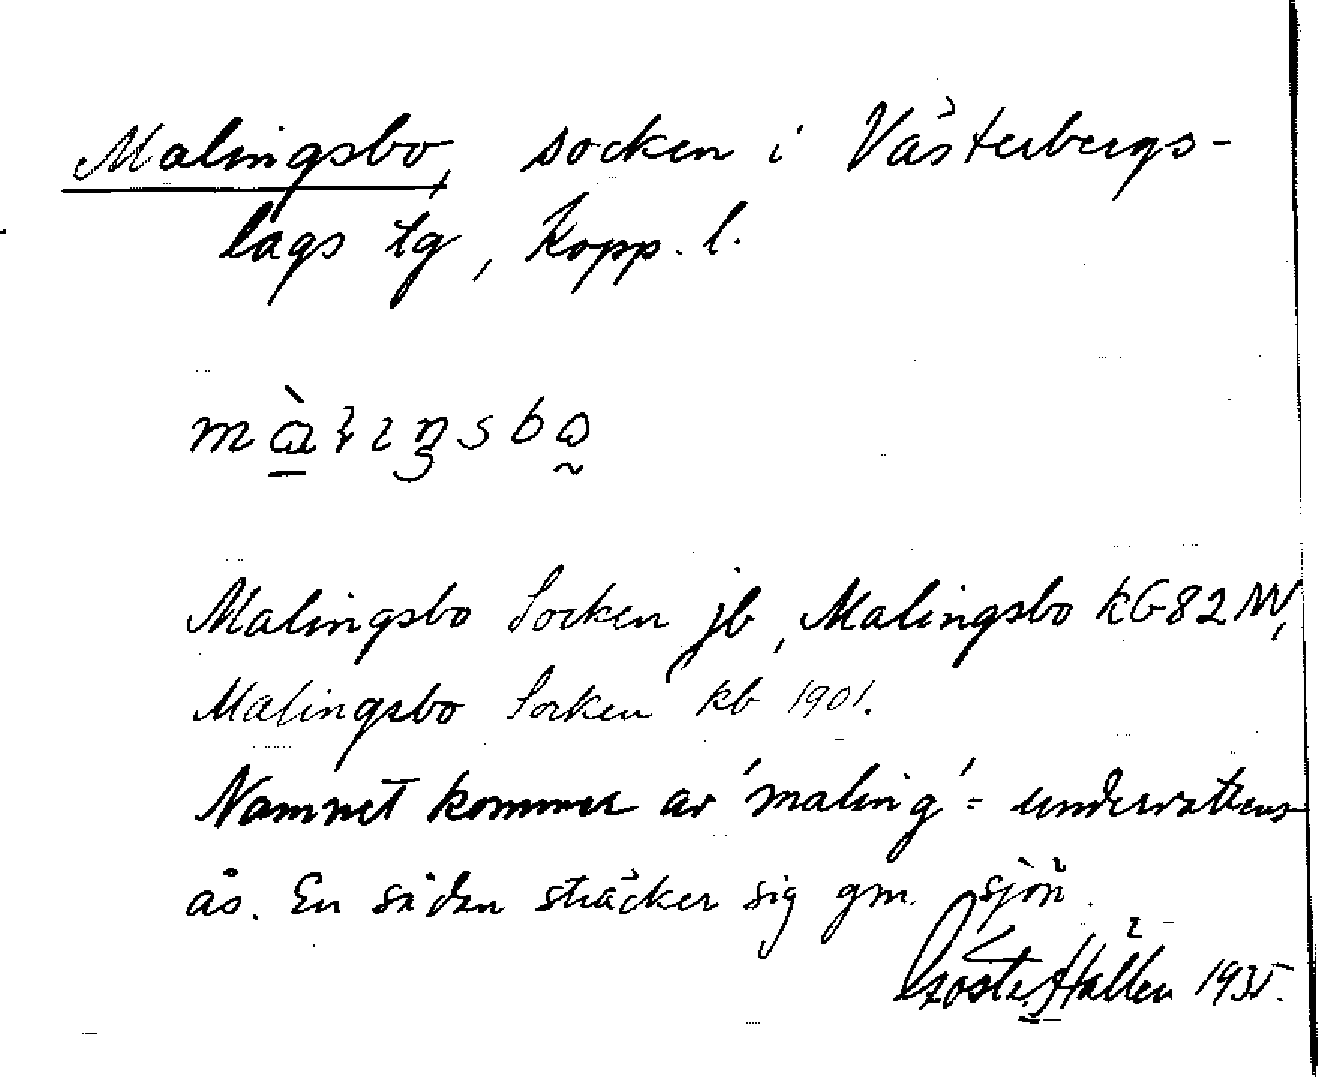 Malingsbo, socken i Västerbergs-
lags tg, Kopp. l.
Malingsbo Socken jb, Malingsbo kG82NV,
Malingsbo Socken kb 1901.
Namnet kommer av 'maling' = undervattens
ås. En sådan sträcker sig gm. sjön.
Gösta Hallén 1935.